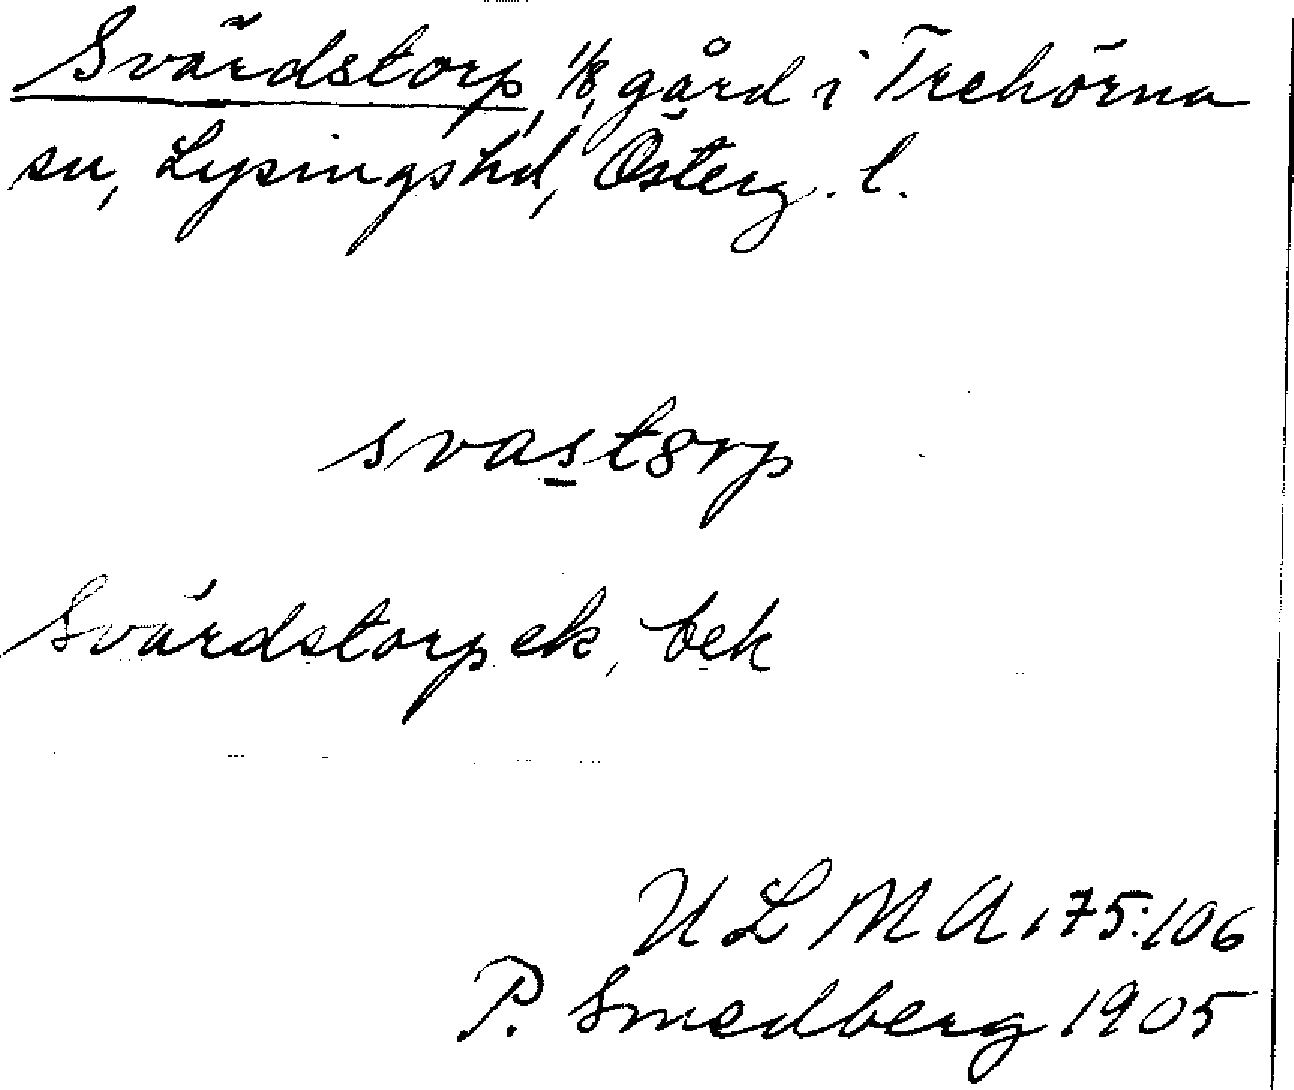 Svärdstorp, 1/8, gård i Trehörna
sn, Lysingshd, Österg. l.
svastorp
Svärdstorpek, bek
ULMA 175:106
P. Smedberg 1905